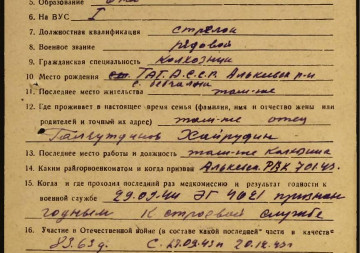 5. Образование
6. На ВУС I
7. Должностная квалификация стрелок
8. Военное звание рядовой
9. Гражданская специальность колхозник
10 Место рождения ТАТ. А.С.С.Р. Алькиевс р-н
11. Последнее место жительства там-же
12. Где проживает в настоящее время семья (фамилия, имя и отчество жены или
родителей и точный их адрес) там-же отец
Хайрудин
13. Последнее место работы и должность там-же Колхозник
14. Каким райгорвоенкоматом и когда призван Алькеев. РВК
15. Когда и где проходил последний раз медкомиссию и результат годности к
военной службе 29.09.44 ЭГ 4621 признан
годным к строевой службе
16. Участие в Отечественной войне (в составе какой последней части и в качестве
83.63 д. С